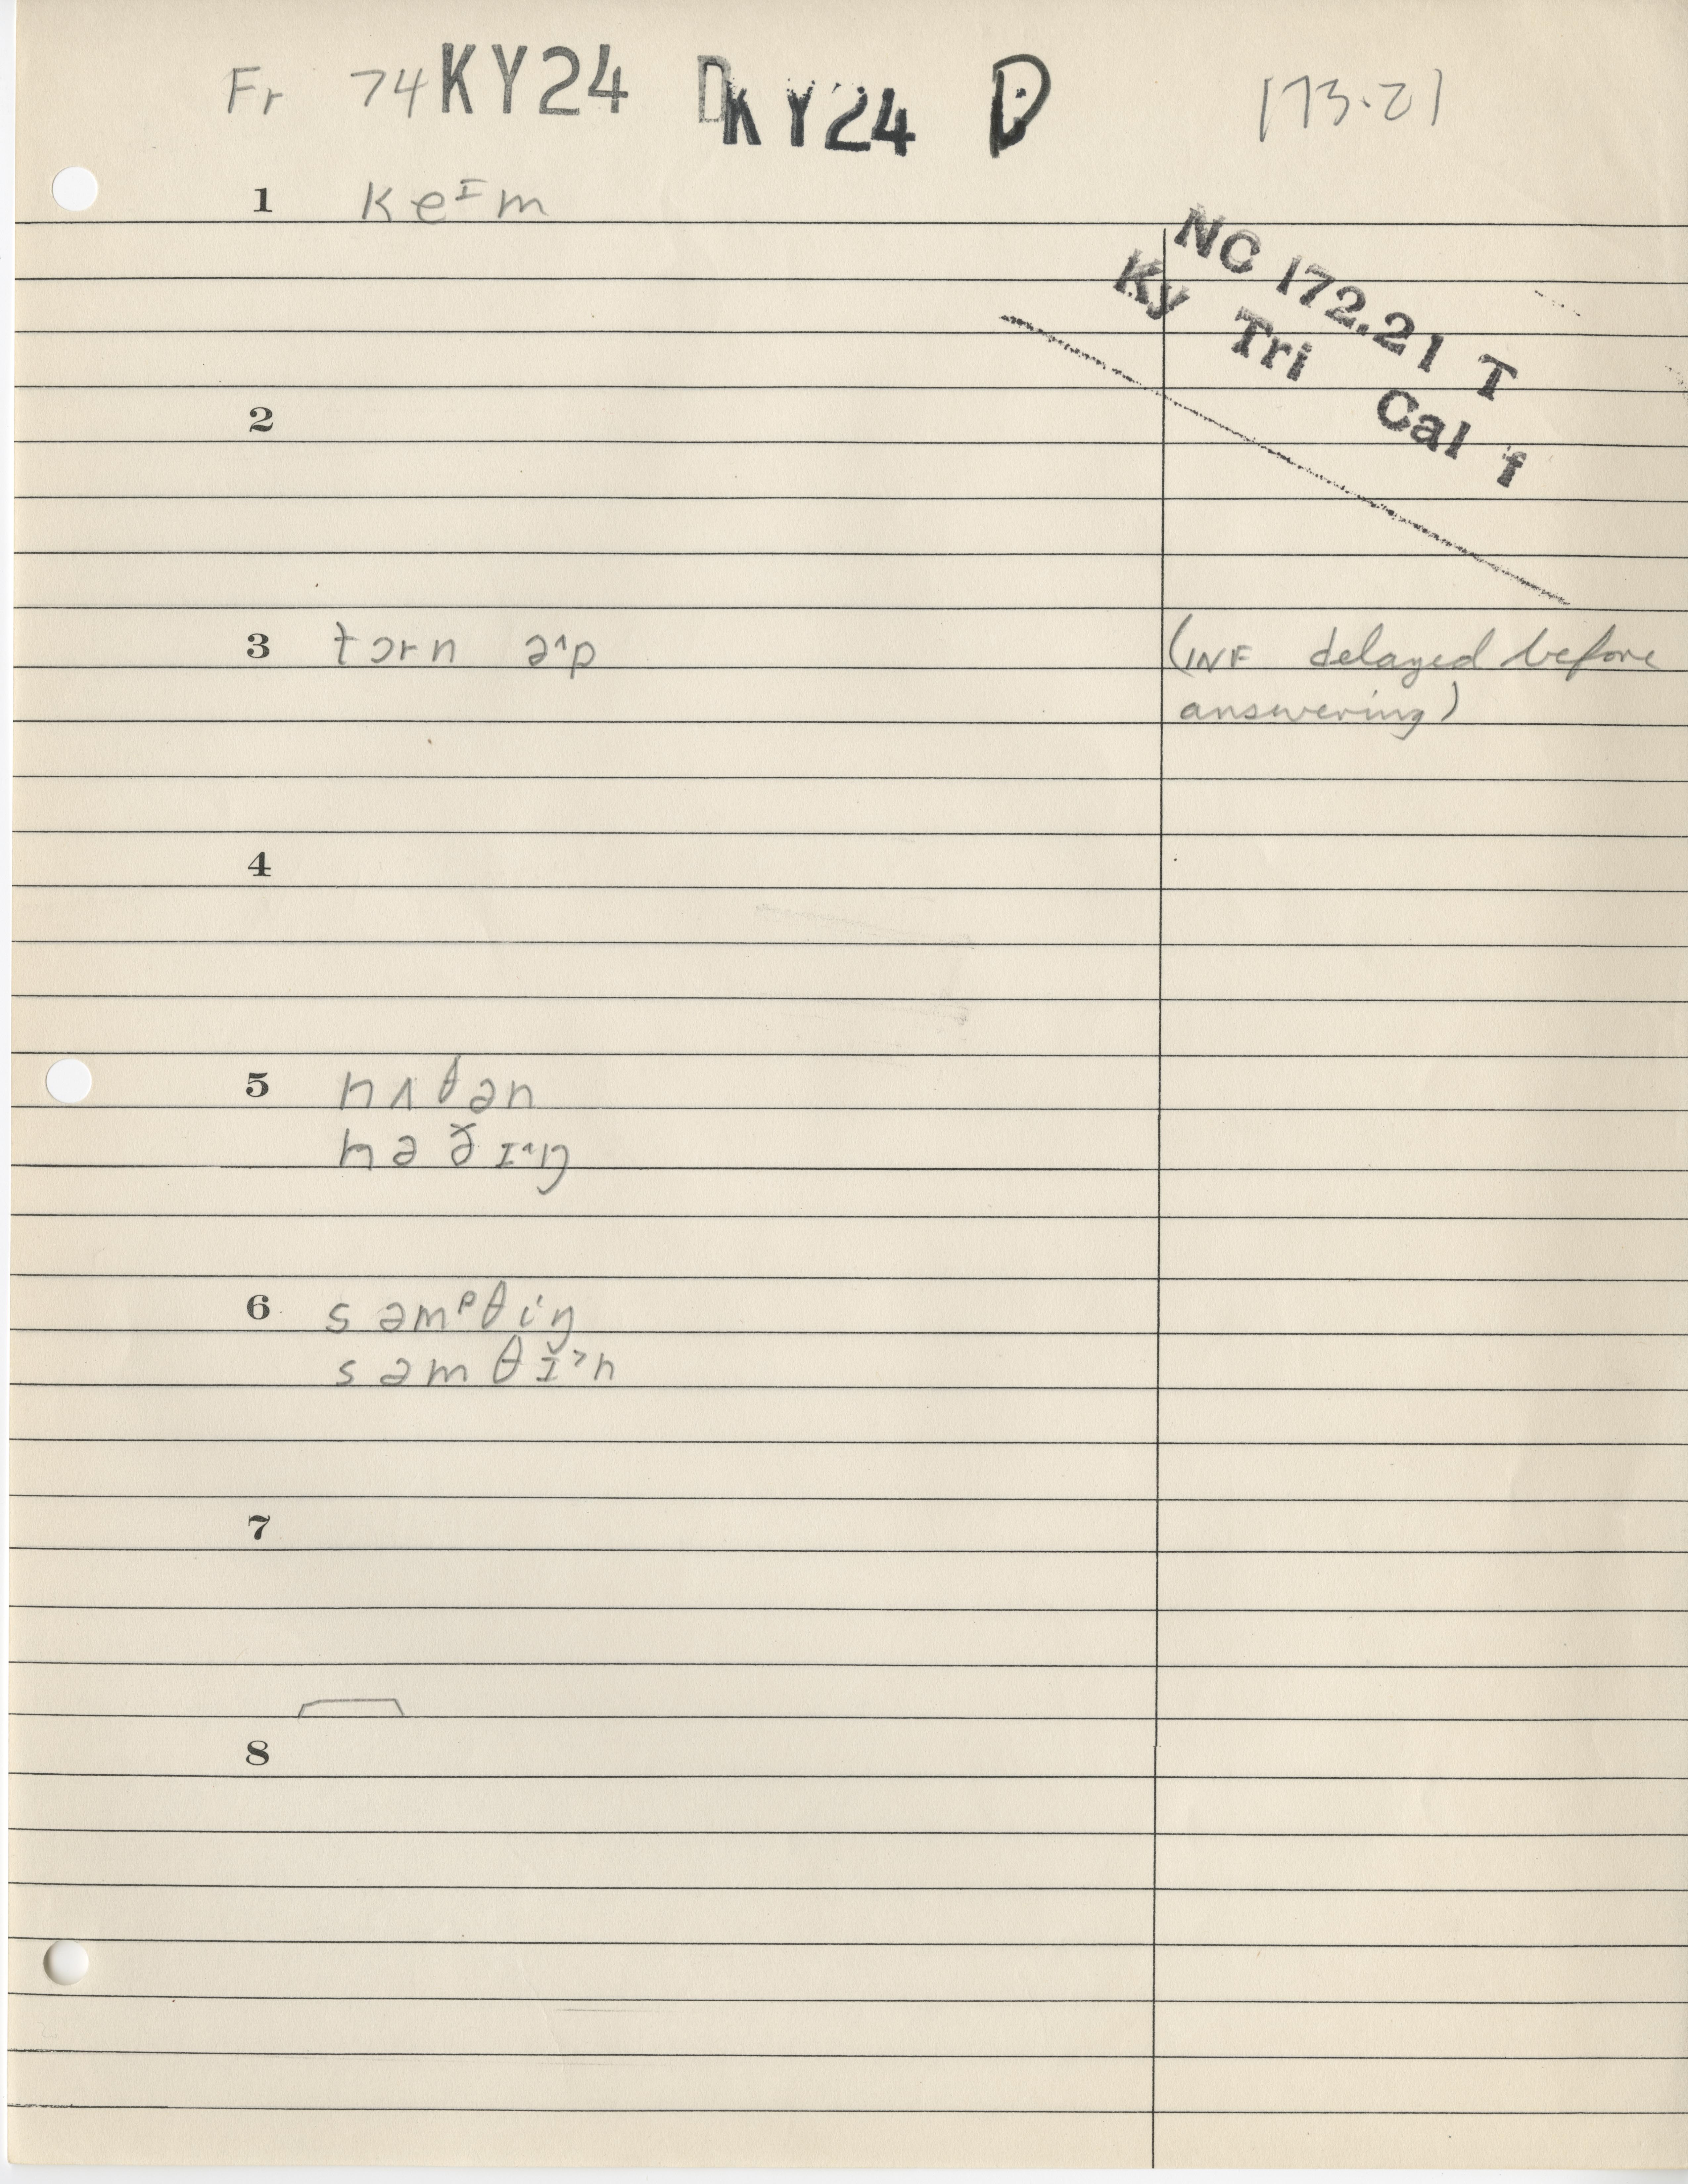 Fr 74 KY24 D KY24 D 173.21
1 keᴵm
NC 172.21 T
Ky Tri Cal f
2
3 tɔrn ə˄p (INF delayed before
answering)
4
5 nʌθən
nəðɪ˄ŋ
6 səmᵖθiŋ
səmθɪ˃n
7
8